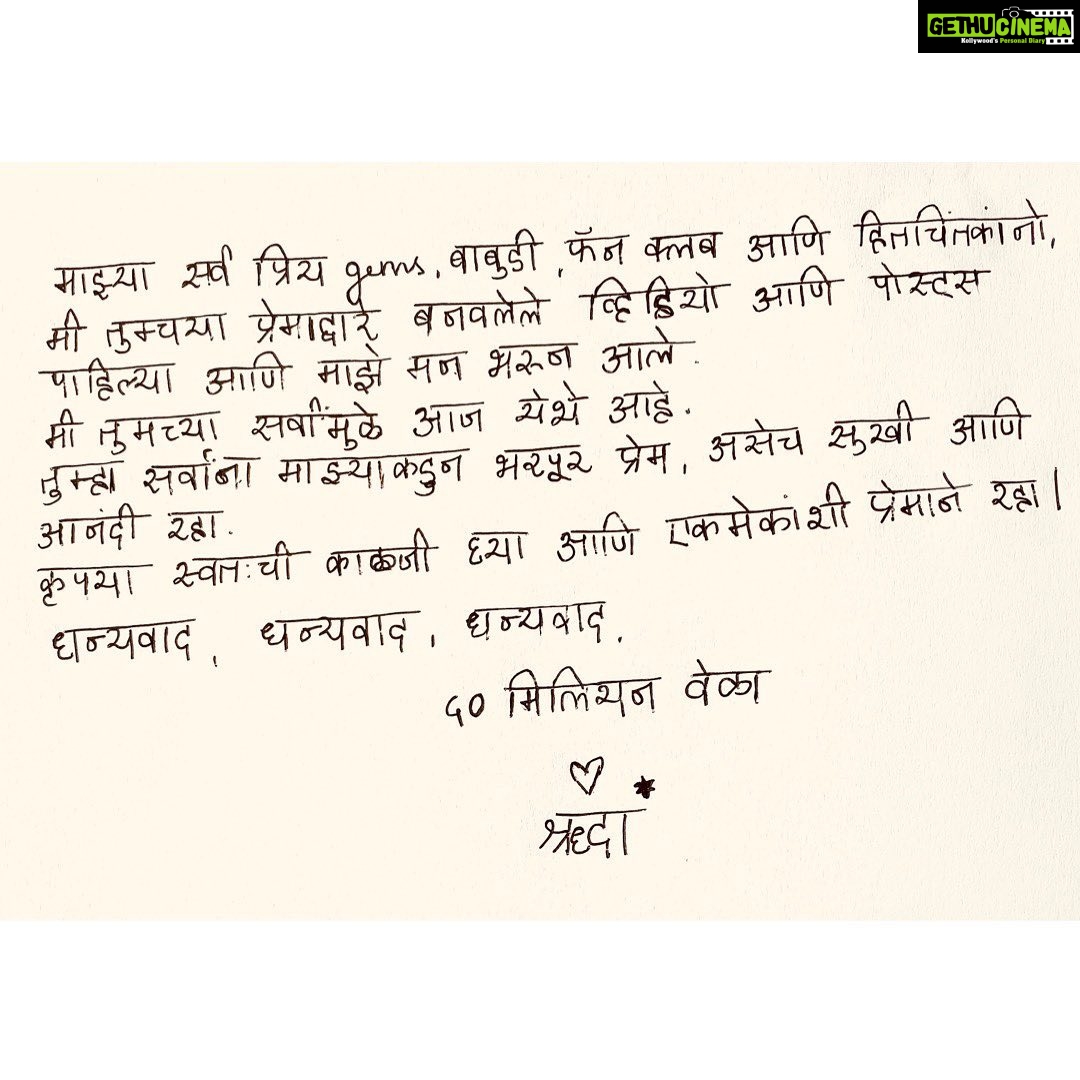 GETHUCINEMA
Kollywood's Personal Diary
माझ्या सर्व प्रिय gems, बाबुडी, फॅन क्लब आणि हितचिंतकांनो,
मी तुम्चया प्रेमाद्वारे बनवलेले व्हिडियो आणि पोस्ट्स
पाहिल्या आणि माझे मन भरून आले.
मी तुमच्या सर्वांमुळे आज येथे आहे.
तुम्हा सर्वांना माझ्याकडुन भरपूर प्रेम, असेच सुखी आणि
आनंदी रहा.
कृपया स्वतःची काळजी घ्या आणि एकमेकांशी प्रेमाने रहा।
धन्यवाद, धन्यवाद, धन्यवाद,
५० मिलियन वेळा
श्रद्धा